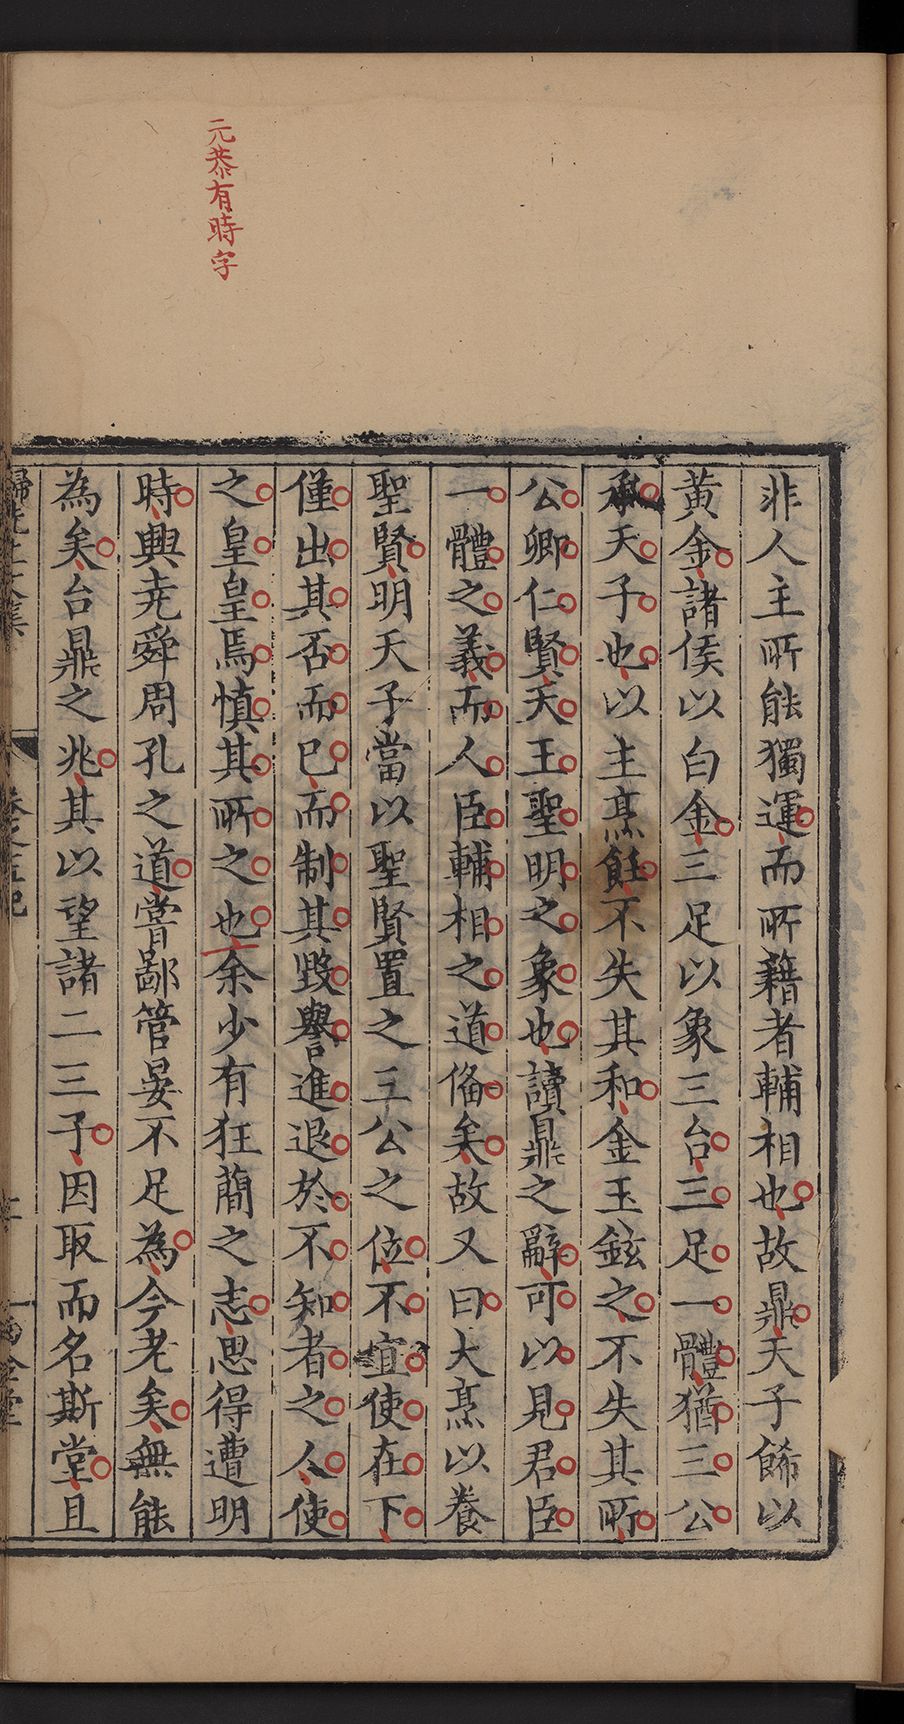 元恭有時字
非人主所能獨運而所藉者輔相也故鼎天子餙以
黃金諸侯以白金三足以象三台三足一體猶三公
承天子也以主烹飪不失其和金玉鉉之不失其所
公卿仁賢天王聖明之象也讀鼎之辭可以見君臣
一體之義而人臣輔相之道俻矣故又曰大烹以養
聖賢明天子當以聖賢置之三公之位不宜使在下
僅出其否而已而制其毀譽進退於不知者之人使
之皇皇焉慎其所之也余少有狂簡之志思得遭明
時興堯舜周孔之道嘗鄙管晏不足為今老矣無能
為矣台鼎之兆其以望諸二三子因取而名斯堂且